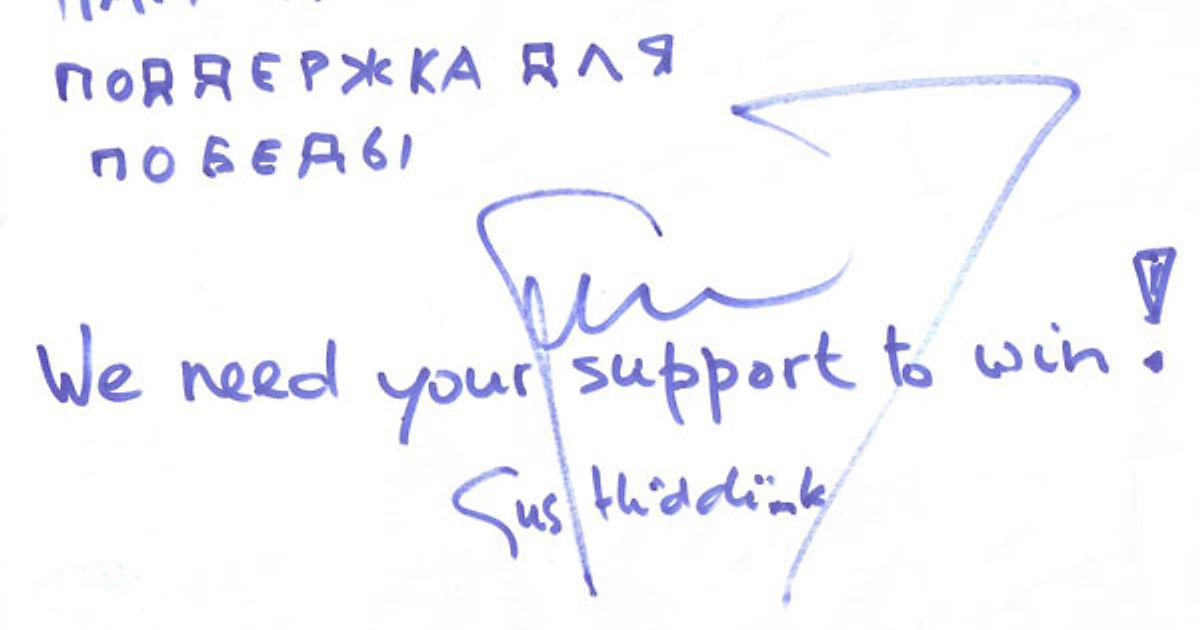 ПОДДЕРЖКА ДЛЯ
ПОБЕДЫ
We need your support to win!
Gus Hiddink